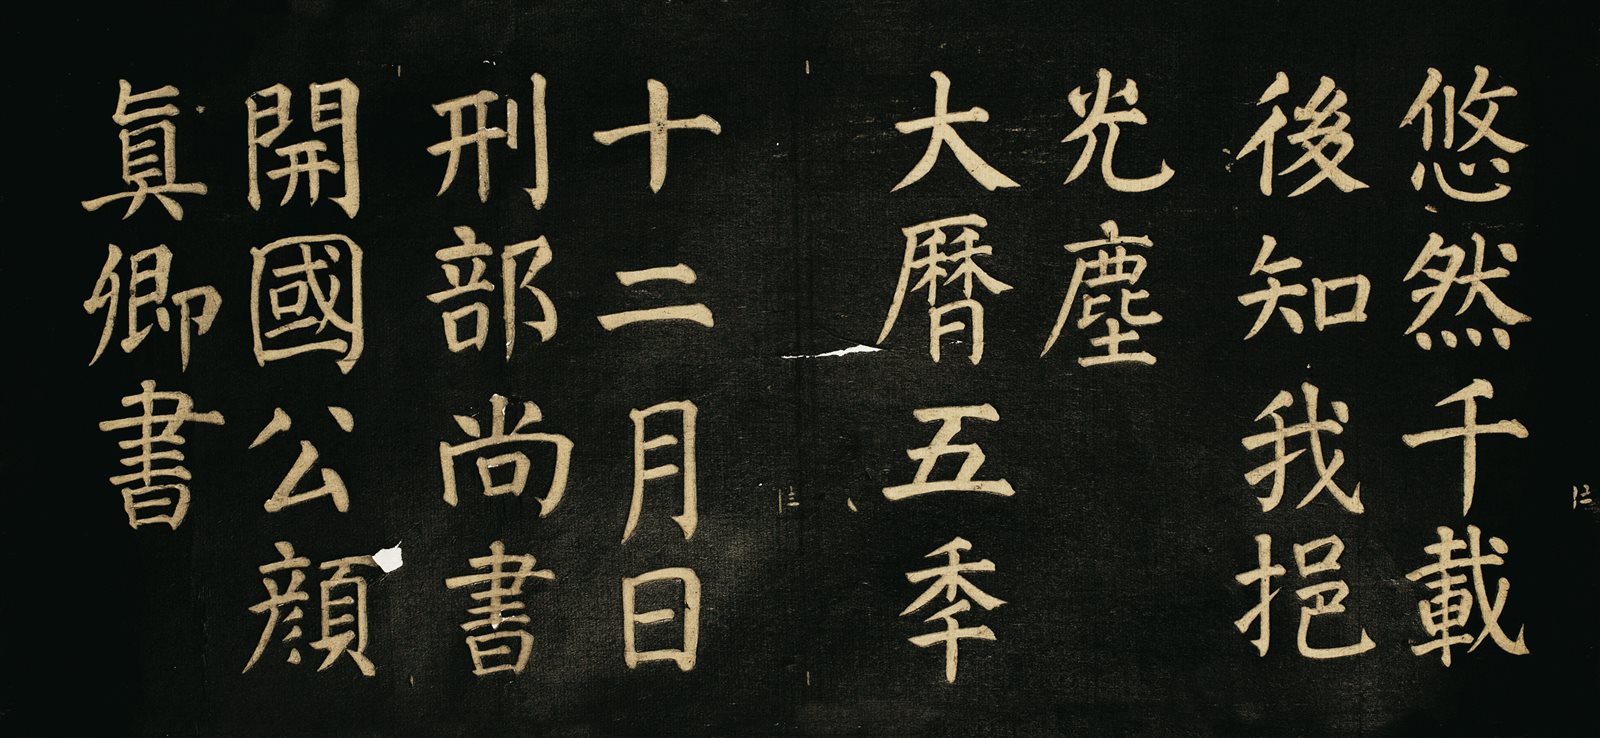 悠然千載
後知我挹
光塵
大曆五秊
十二月日
刑部尚書
開國公顏
真卿書